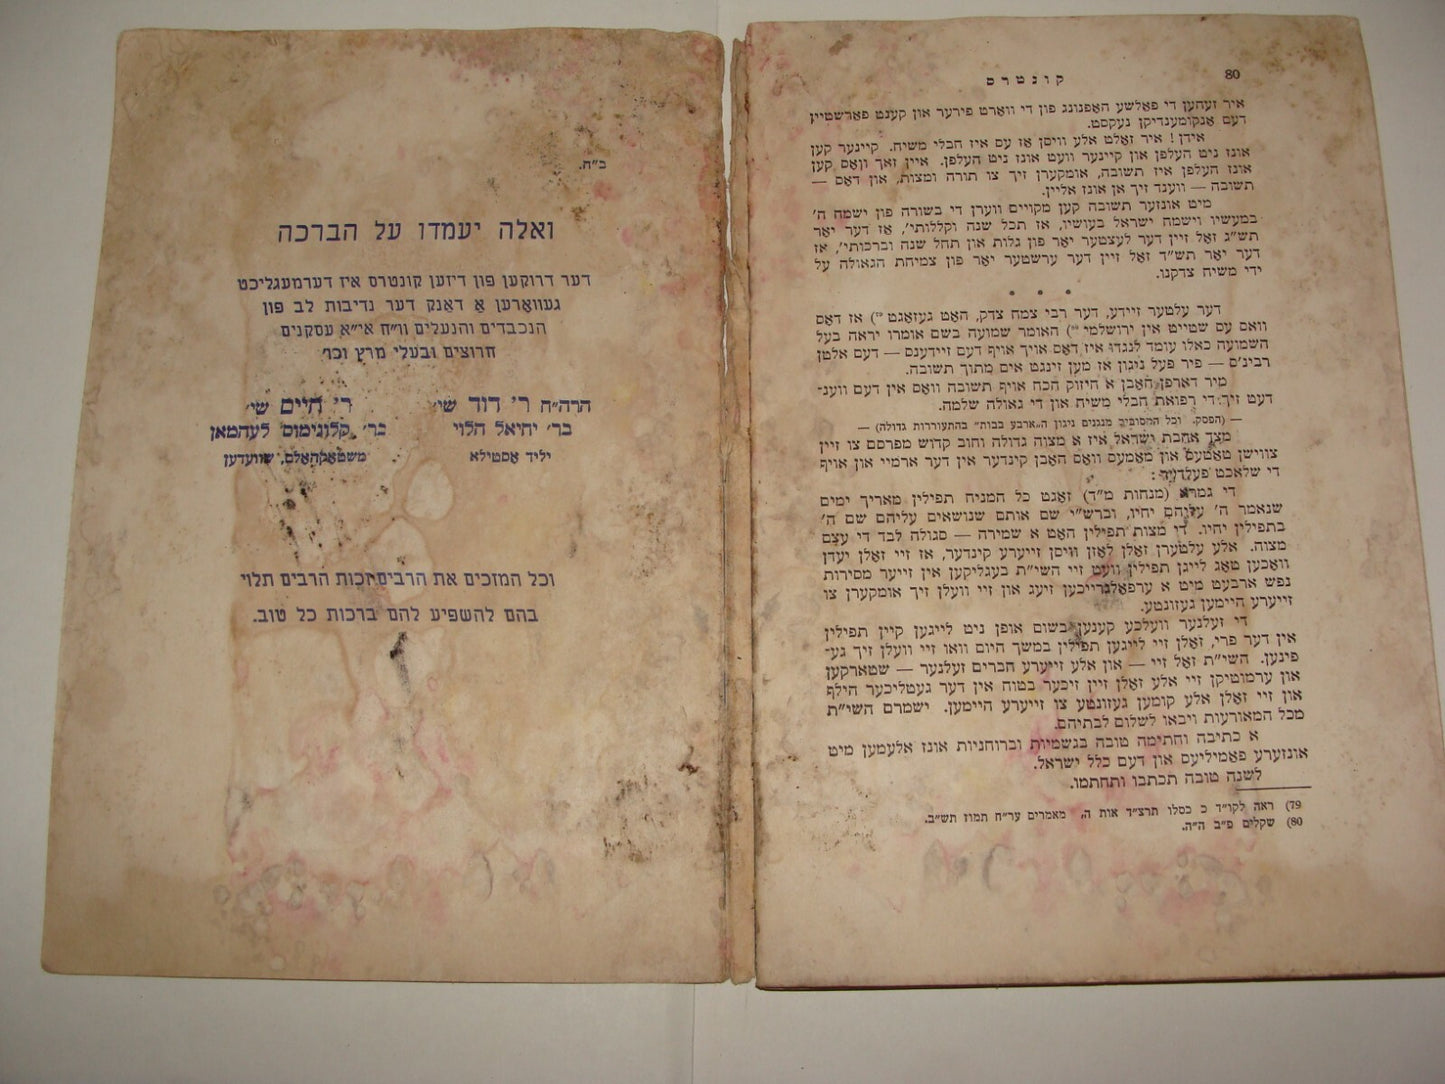 קונטרס 80
איר זעהען די פאַלשע האָפנונג פון די וואָרט פירער און קענט פאַרשטיין
דעם אָנקומענדיקן נעקסט.
אידן! איר זאָלט אלע וויסן אַז עס איז חבלי משיח. קיינער קען
אונז ניט העלפן און קיינער וועט אונז ניט העלפן. איין זאך וואָס קען
אונז העלפן איז תשובה, אומקערן זיך צו תורה ומצות, און דאָס —
תשובה — ווענד זיך אן אונז אליין.
מיט אונזער תשובה קען מקויים ווערן די בשורה פון ישמח ה׳
במעשיו וישמח ישראל בעושיו, אז תכל שנה וקללותי׳, אַז דער יאָר
תש״ג זאָל זיין דער לעצטער יאָר פון גלות און תחל שנה וברכותי׳, אז
דער יאָר תש״ד זאָל זיין דער ערשטער יאָר פון צמיחת הגאולה על
ידי משיח צדקנו.
• • •
דער עלטער זיידע, דער רבי צמח צדק, האָט געזאָגט ⁷⁹) אז דאָס
וואָס עס שטייט אין ירושלמי ⁸⁰) האומר שמועה בשם אומרו יראה בעל
השמועה כאלו עומד לנגדו איז דאָס אויך אויף דעם זיידענס — דעם אלטן
רבינ׳ס — פיר פעל ניגון אז מען זינגט אים מתוך תשובה.
מיר דארפן האָבן א חיזוק הכח אויף תשובה וואָס אין דעם ווענ־
דעט זיך די רפואת חבלי משיח און די גאולה שלמה.
— (הפסק. וכל המסובין מנגנים ניגון ה„ארבע בבות” בהתעוררות גדולה) —
מצד אהבת ישראל איז א מצוה גדולה וחוב קדוש מפרסם צו זיין
צווישן טאַטעס און מאַמעס וואָס האָבן קינדער אין דער ארמיי און אויף
די שלאכט פעלדער:
די גמרא (מנחות מ״ד) זאָגט כל המניח תפילין מאריך ימים
שנאמר ה׳ עליהם יחיו, וברש״י שם אותם שנושאים עליהם שם ה׳
בתפילין יחיו. די מצות תפילין האָט א שמירה — סגולה לבד די עצם
מצוה. אלע עלטערן זאָלן לאָזן וויסן זייערע קינדער, אז זיי זאָלן יעדן
וואָכען טאָג לייגן תפילין וועט זיי השי״ת בעגליקען אין זייער מסירות
נפש ארבעט מיט א ערפאָלגרייכען זיעג און זיי וועלן זיך אומקערן צו
זייערע היימען געזונטע.
די זעלנער וועלכע קענען בשום אופן ניט לייגען קיין תפילין
אין דער פרי, זאָלן זיי לייגען תפילין במשך היום וואו זיי וועלן זיך גע־
פינען. השי״ת זאָל זיי — און אלע זייערע חברים זעלנער — שטארקען
און ערמוטיקן זיי אלע זאָלן זיין זיכער בטוח אין דער געטליכער הילף
און זיי זאָלן אלע קומען געזונטע צו זייערע היימען. ישמרם השי״ת
מכל המאורעות ויבאו לשלום לבתיהם.
א כתיבה וחתימה טובה בגשמיות וברוחניות אונז אלעמען מיט
אונזערע פאַמיליעס און דעם כלל ישראל.
לשנה טובה תכתבו ותחתמו.
79) ראה לקו״ד כ כסלו תרצ״ד אות ה, מאמרים ער״ח תמוז תש״ב.
80) שקלים פ״ב ה״ה.
ב״ה.
ואלה יעמדו על הברכה
דער דרוקען פון דיזען קונטרס איז דערמעגליכט
געוואָרען אַ דאַנק דער נדיבות לב פון
הנכבדים והנעלים ור״ח אי״א עסקנים
חרוצים ובעלי מרץ וכו׳
הרה״ח ר׳ דוד שי׳ ר׳ חיים שי׳
בר׳ יחיאל הלוי בר׳ קלונימוס לעהמאן
יליד אָסטילא משטאָקהאָלם, שוועדען
וכל המזכים את הרבים זכות הרבים תלוי
בהם להשפיע להם ברכות כל טוב.